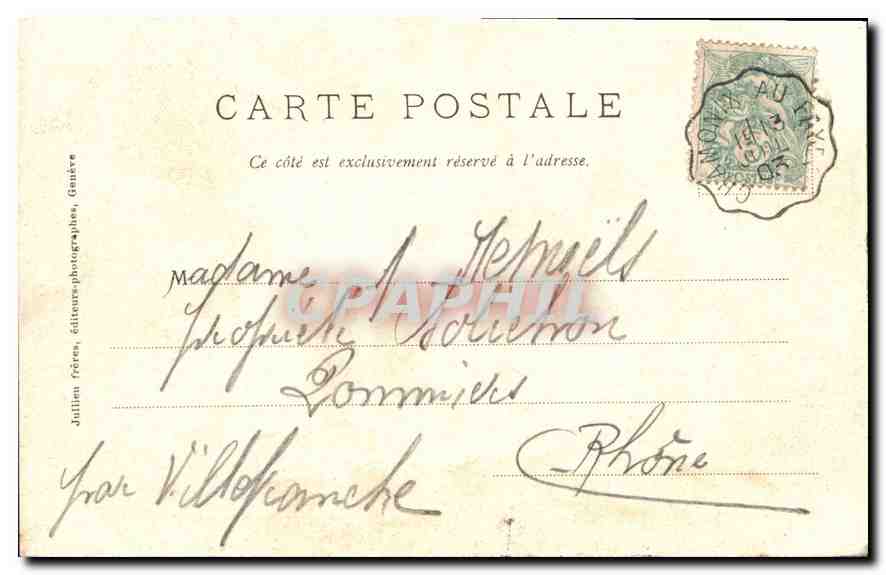 CARTE POSTALE
Ce côté est exclusivement réservé à l'adresse.
Jullien frères, éditeurs-photographes, Genève
CHAMONIX AU FAYET
13
03
Madame
CPAPHIL
Pommiers
Rhône
par Villefranche